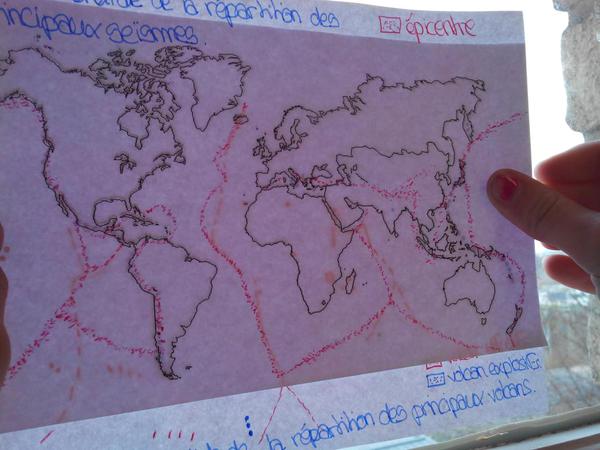 de la répartition des
principaux seismes.
épicentre
volcan explosif.
de la répartition des principaux volcans.